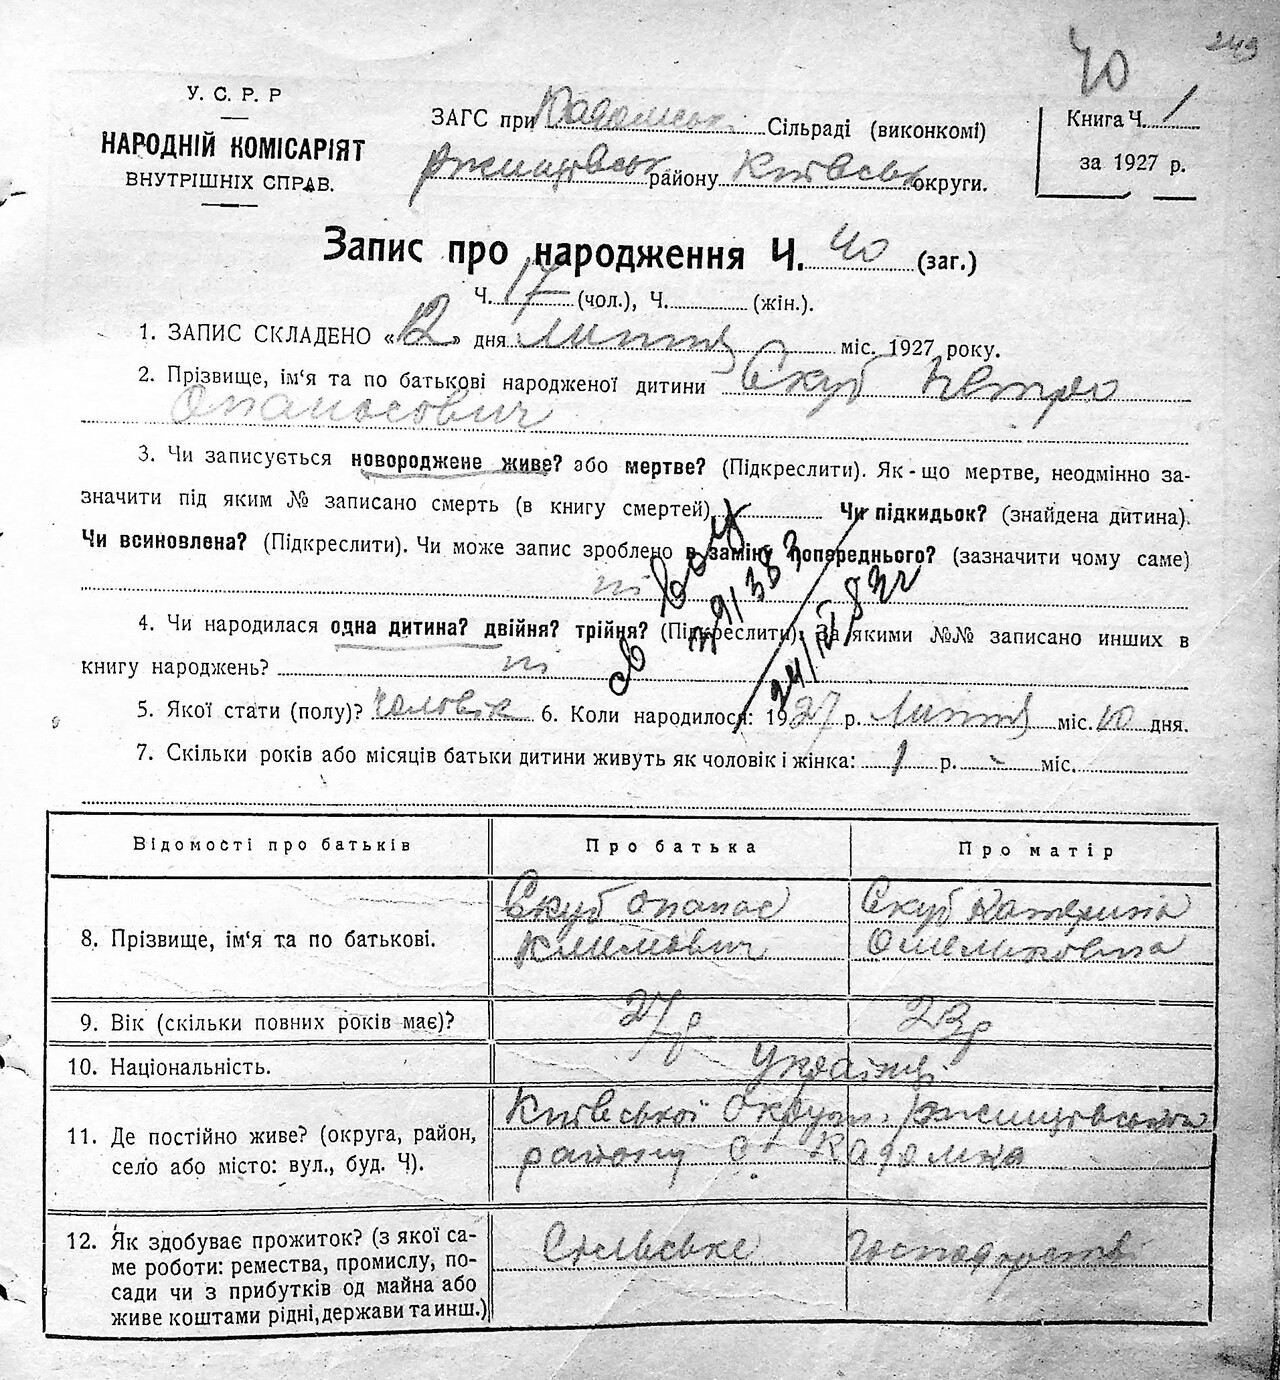 249
40
У. С. Р. Р
НАРОДНІЙ КОМІСАРІЯТ
ВНУТРІШНІХ СПРАВ.
ЗАГС при Кадомськ. Сільраді (виконкомі)
Ржищівськ району Київськ округи.
Книга Ч. 1
за 1927 р.
Запис про народження Ч. 40 (заг.)
Ч. 17 (чол.), Ч. (жін.).
1. ЗАПИС СКЛАДЕНО «12» дня Липня міс. 1927 року.
2. Прізвище, ім‘я та по батькові народженої дитини Скуб Петро
Опанасович
3. Чи записується новороджене живе? або мертве? (Підкреслити). Як-що мертве, неодмінно за-
значити під яким № записано смерть (в книгу смертей) Чи підкидьок? (знайдена дитина).
Чи всиновлена? (Підкреслити). Чи може запис зроблено в заміну попереднього? (зазначити чому саме)
ні
4. Чи народилася одна дитина? двійня? трійня? (Підкреслити). За якими №№ записано инших в
книгу народжень? ні
5. Якої стати (полу)? Чоловік 6. Коли народилося: 1927 р. Липня міс. 10 дня.
7. Скільки років або місяців батьки дитини живуть як чоловік і жінка: 1 р. - міс.
Відомості про батьків Про батька Про матір
8. Прізвище, ім‘я та по батькові. Скуб Опанас Скуб Катерина
Климович Омельковна
9. Вік (скільки повних років має)? 27 р 23 р
10. Національність. Українці
11. Де постійно живе? (округа, район, Київської Округи. Ржищівського
село або місто: вул., буд. Ч). району с. Кадомка
12. Як здобуває прожиток? (з якої са- Сільське Господарство
ме роботи: ремества, промислу, по-
сади чи з прибутків од майна або
живе коштами рідні, держави та инш.)